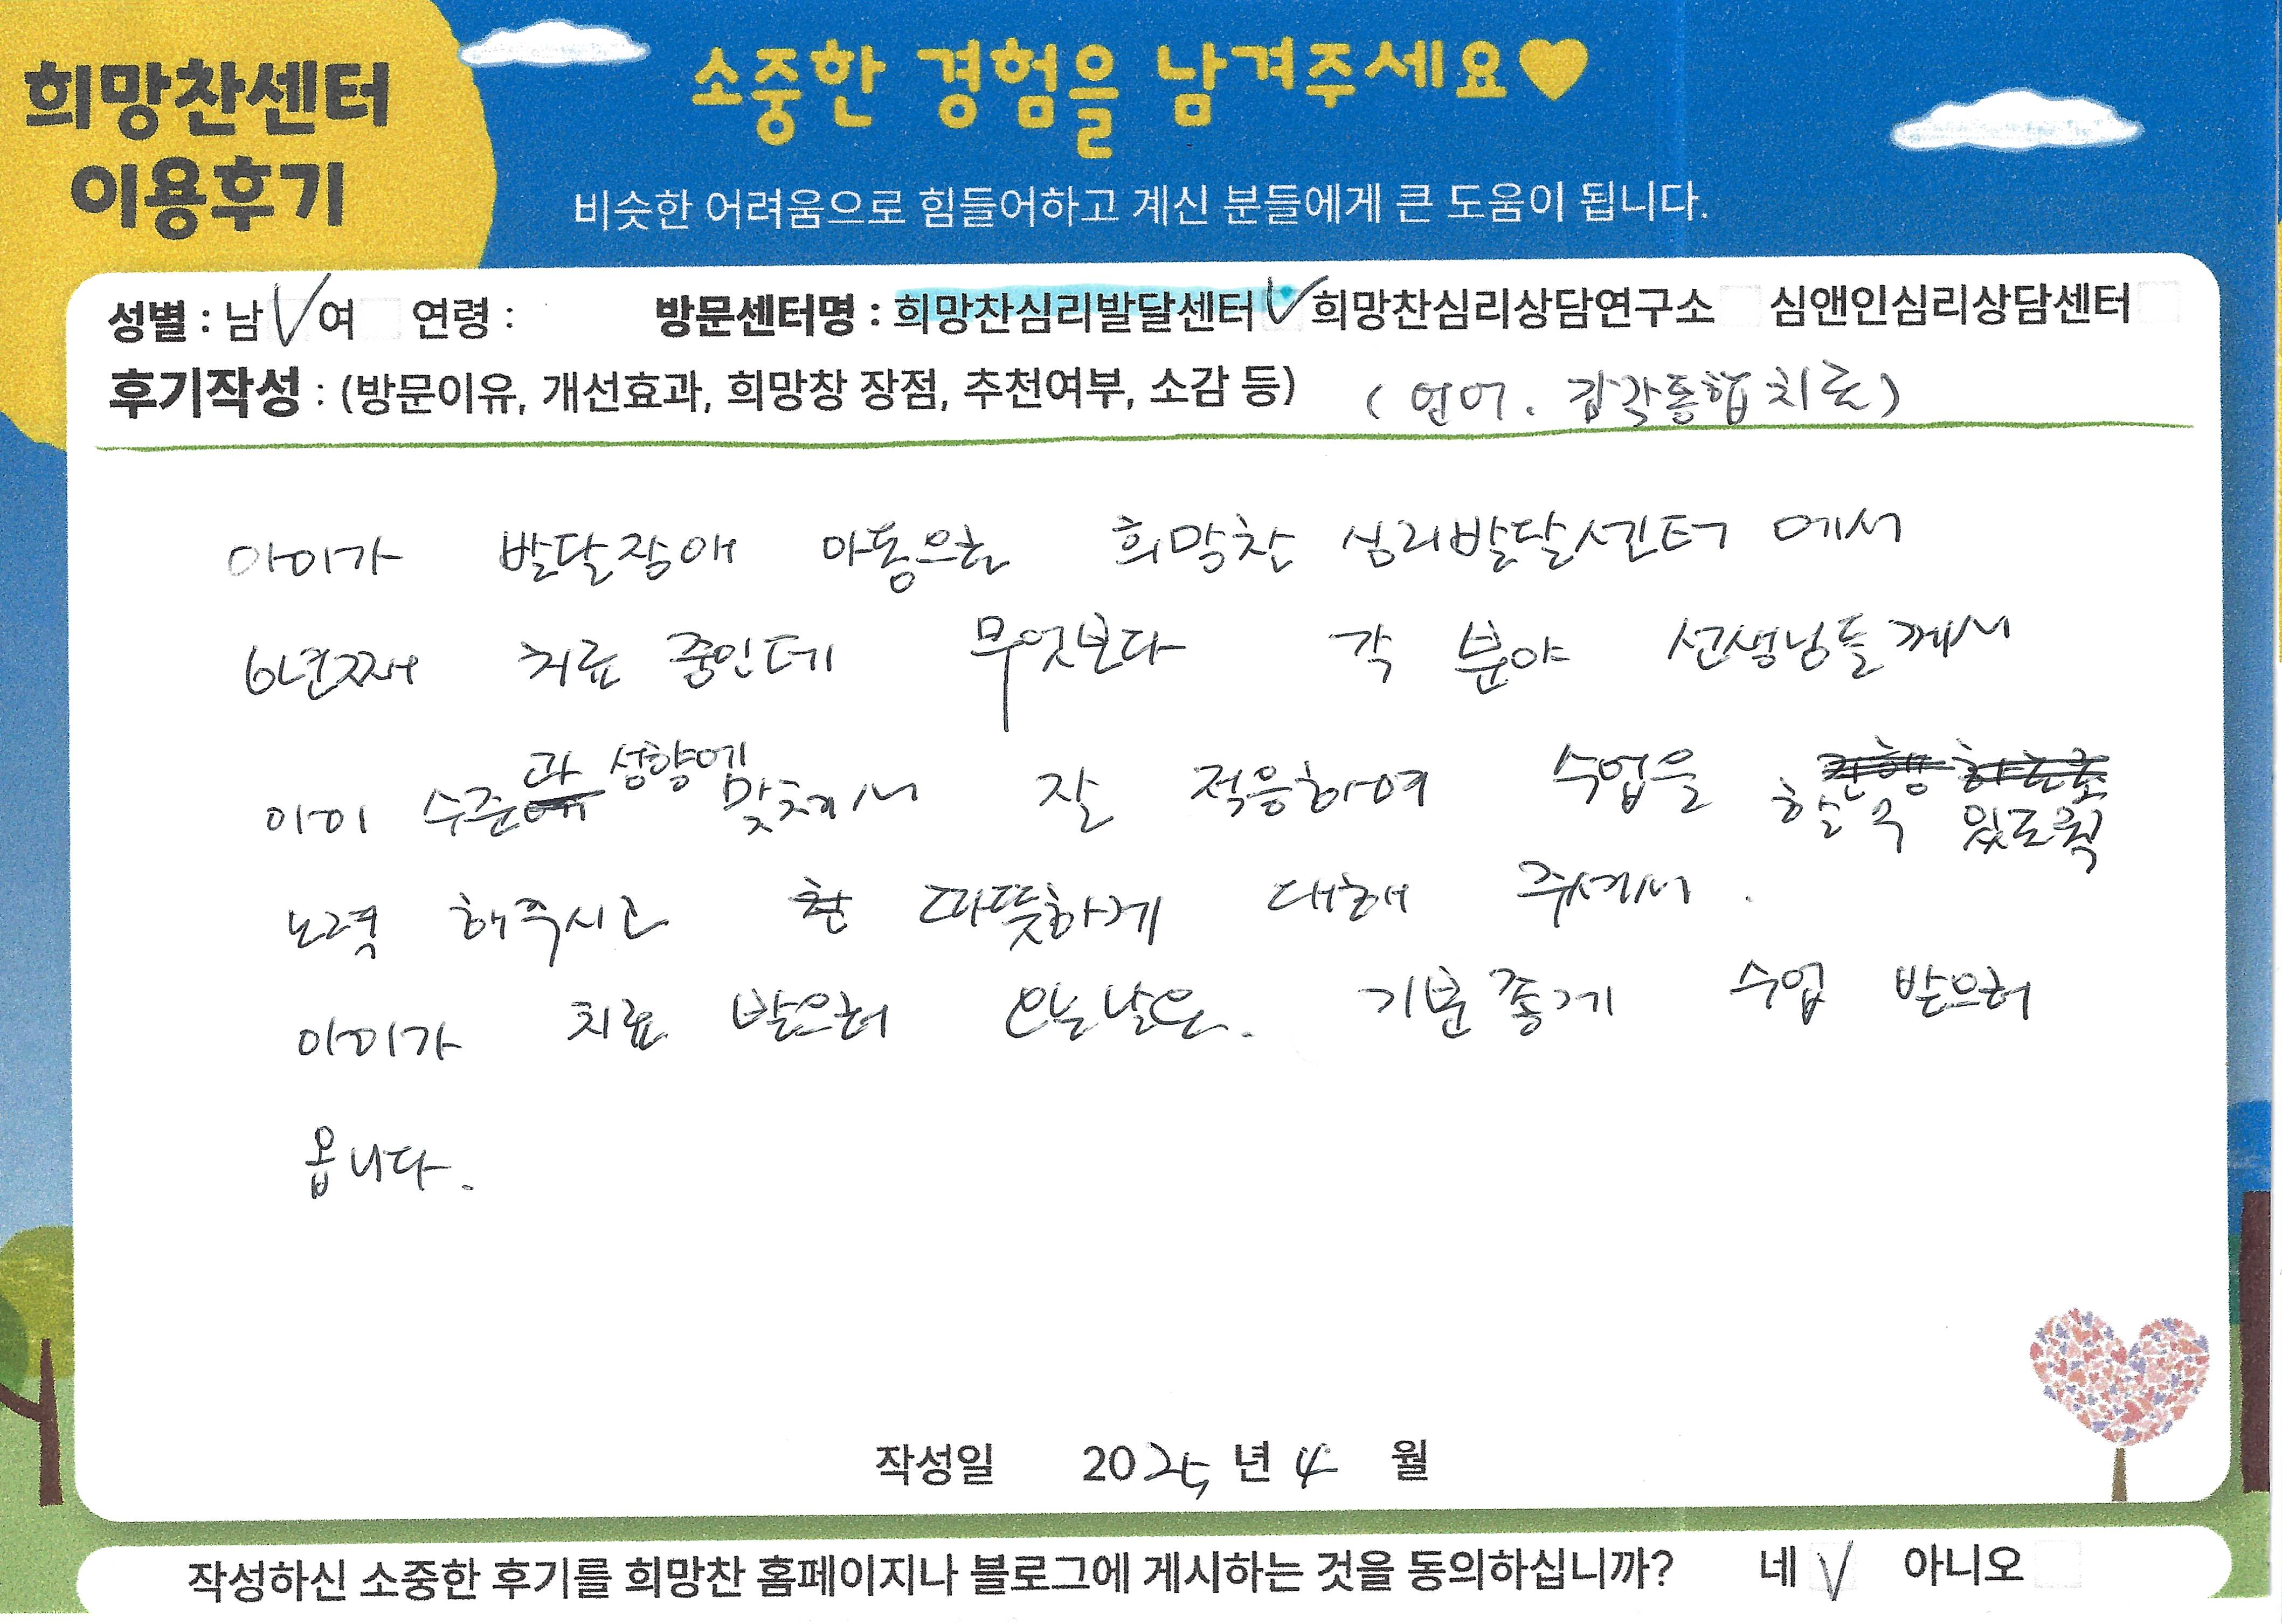 희망찬센터
이용후기
소중한 경험을 남겨주세요♥
비슷한 어려움으로 힘들어하고 계신 분들에게 큰 도움이 됩니다.
성별 : 남 √ 여 연령 : 방문센터명 : 희망찬심리발달센터 √ 희망찬심리상담연구소 심앤인심리상담센터
후기작성 : (방문이유, 개선효과, 희망창 장점, 추천여부, 소감 등) (언어. 감각통합치료)
아이가 발달장애 아동으로 희망찬 심리발달센터에서
6년째 치료 중인데 무엇보다 각 분야 선생님들께서
아이 수준과 성향에 맞춰서 잘 적응하여 수업을 할 수 있도록
노력 해주시고 따뜻하게 대해 주셔서.
아이가 치료 받으러 오는날은. 기분좋게 수업 받으러
옵니다.
작성일 2025년 4 월
작성하신 소중한 후기를 희망찬 홈페이지나 블로그에 게시하는 것을 동의하십니까? 네 √ 아니오